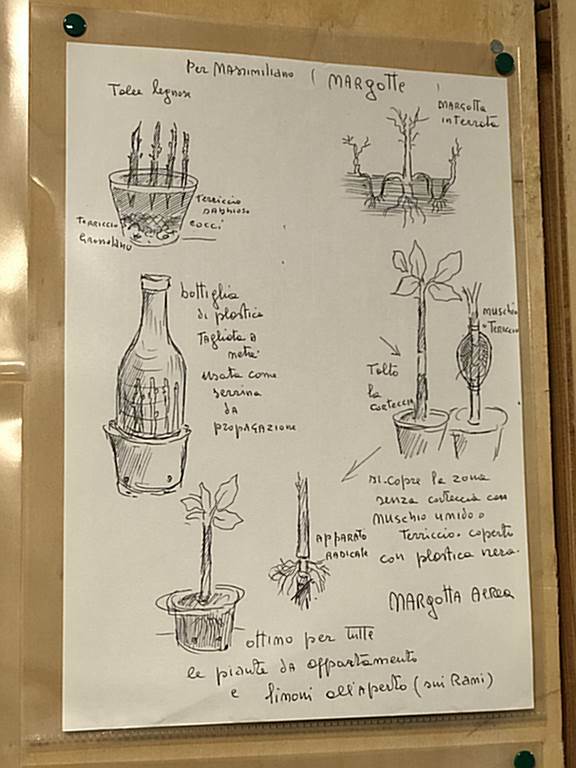 Per Massimiliano (MARGOTTE)
Talee legnose
MARGOTTA
interrata
Terriccio
sabbioso
cocci
Terriccio
Grossolano
bottiglia
di plastica
Tagliata a
metà
usata come
serrina
da
propagazione
muschio
o Terriccio
Tolto
la
corteccia
si copre la zona
senza corteccia con
muschio umido o
Terriccio. coperto
con plastica nera.
MARGOTTA AEREA
APPARATO
RADICALE
ottimo per tutte
le piante da appartamento
e limoni all'aperto (sui Rami)